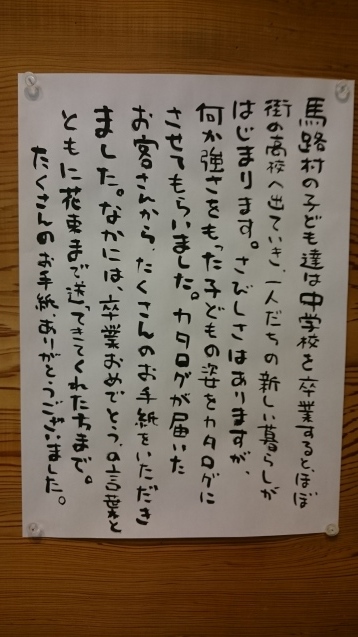 馬路村の子ども達は中学校を卒業すると、ほぼ
街の高校へ出ていき、一人だちの新しい暮らしが
はじまります。さびしさはありますが、
何か強さをもった子どもの姿をカタログに
させてもらいました。カタログが届いた
お客さんから、たくさんのお手紙をいただき
ました。なかには、卒業おめでとう、の言葉と
ともに花束まで送ってきてくれた方まで。
たくさんのお手紙、ありがとうございました。